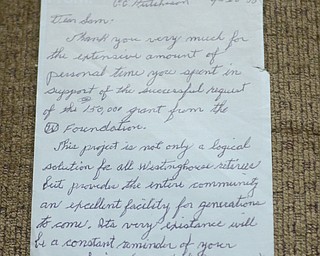 Dear Sam:
Thank you very much for
the extensive amount of
personal time you spent in
support of the successful request
of the 150,000 grant from the
Foundation.
This project is not only a logical
solution for all Westinghouse retirees
but provides the entire community
an excellent facility for generations
to come. Its very existance will
be a constant reminder of your